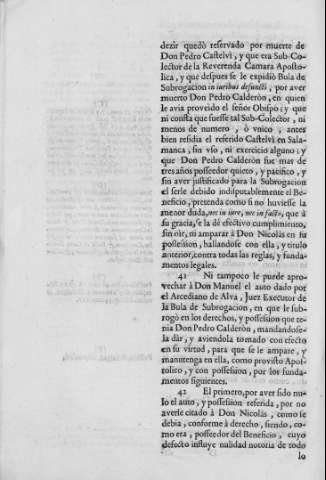 dezir quedò reservado por muerte de
Don Pedro Castelvì, y que era Sub-Co-
lector de la Reverenda Camara Aposto-
lica, y que despues se le expidiò Bula de
Subrogacion in iuribus defuncti, por aver
muerto Don Pedro Calderòn, en quien
le avia proveido el señor Obispo: y que
ni consta que fuesse tal Sub-Colector, ni
menos de numero, ò vnico, antes
bien residia el referido Castelvì en Sala-
manca, sin vso, ni exercicio alguno: y
que Don Pedro Calderòn fue mas de
tres años posseedor quieto, y pacifico, y
sin aver justificado para la Subrogacion
el serle debido indisputablemente el Be-
neficio, pretenda como si no huviesse la
menor duda, nec in iure, nec in facto, que à
su gracia, se la dè efectivo cumplimiento,
sin oir, ni amparar à Don Nicolàs en su
possession, hallandose con ella, y titulo
anterior, contra todas las reglas, y funda-
mentos legales.
41 Ni tampoco le puede apro-
vechar à Don Manuel el auto dado por
el Arcediano de Alva, Juez Executor de
la Bula de Subrogacion, en que le sub-
rogò en los derechos, y possession que te-
nia Don Pedro Calderòn, mandandose-
la dàr, y aviendola tomado con efecto
en su virtud, para que se le ampare, y
manutenga en ella, como provisto Apos-
tolico, y con possession, por los funda-
mentos siguientes.
42 El primero, por aver sido nu-
lo el auto, y possession referida, por no
averse citado à Don Nicolàs, como se
debia, conforme à derecho, siendo, co-
mo era, posseedor del Beneficio, cuyo
defecto influye nulidad notoria de todo
lo